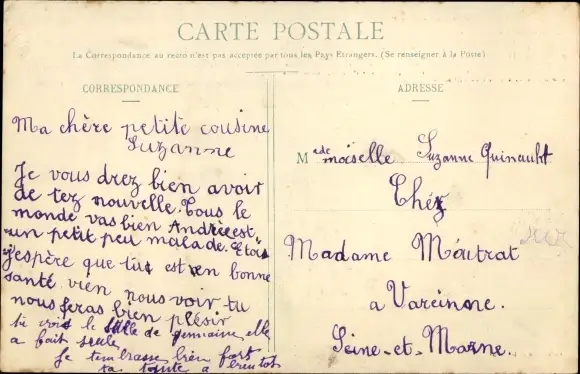 CARTE POSTALE
La Correspondance au recto n'est pas acceptée par tous les Pays Etrangers. (Se renseigner à la Poste)
CORRESPONDANCE
Ma chère petite cousine
Suzanne
Je vous drez bien avoir
de tez nouvelle. Tous le
monde vas bien Andrée est
un petit peu malade. Etois
j'espère que tu est en bonne
santé, vien nous voir tu
nous feras bien plésir
tu vois le de germaine elle
a fait seule
Je tembrasse bien fort
ta tante a bientot
ADRESSE
Mede moiselle Suzanne Quinault
Chéz
Madame Méutrat
a Vareinne.
Seine-et-Marne.